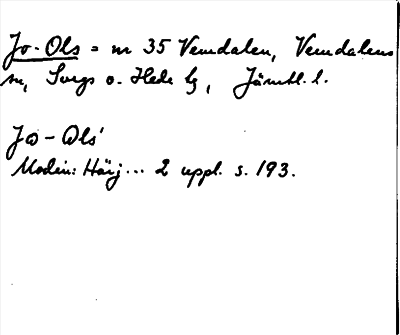 Jo-Ols = nr 35 Vemdalen, Vemdalens
sn, Svegs o. Hede tg, Jämtl. l.
Jo-Ols'
Modin: Härj... 2 uppl. s. 193.